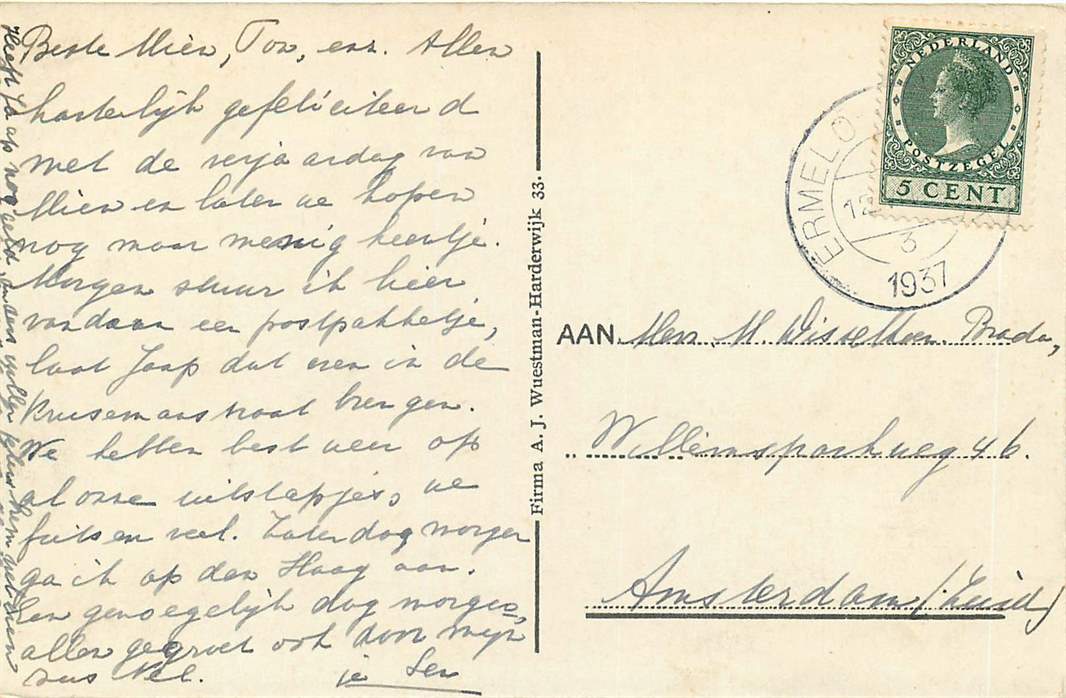 Beste Mien, Ton, enz. Allen
hartelijk gefeliciteerd
met de verjaardag van
Mien en laten we hopen
nog maar menig keertje.
Morgen stuur ik hier
vandaan een postpakketje,
laat Jaap dat even in de
Krusemanstraat brengen.
We hebben best weer op
al onze uitstapjes, we
fietsen veel. Zaterdag morgen
ga ik op den Haag aan.
Een genoegelijk dag morgen,
allen gegroet ook door mijn
zus Nel. je Len
Heeft Jaap nog geld, anders
hem
Firma A. J. Wuestman-Harderwijk 33.
NEDERLAND
POSTZEGEL
5 CENT
ERMELO
12
3
1937
AAN Mevr. M. Visser
Willemsparkweg 46.
Amsterdam (Zuid)